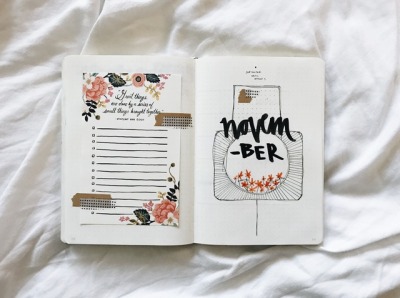 Great things
are done by a series of
small things brought together
VINCENT VAN GOGH
novem
-BER